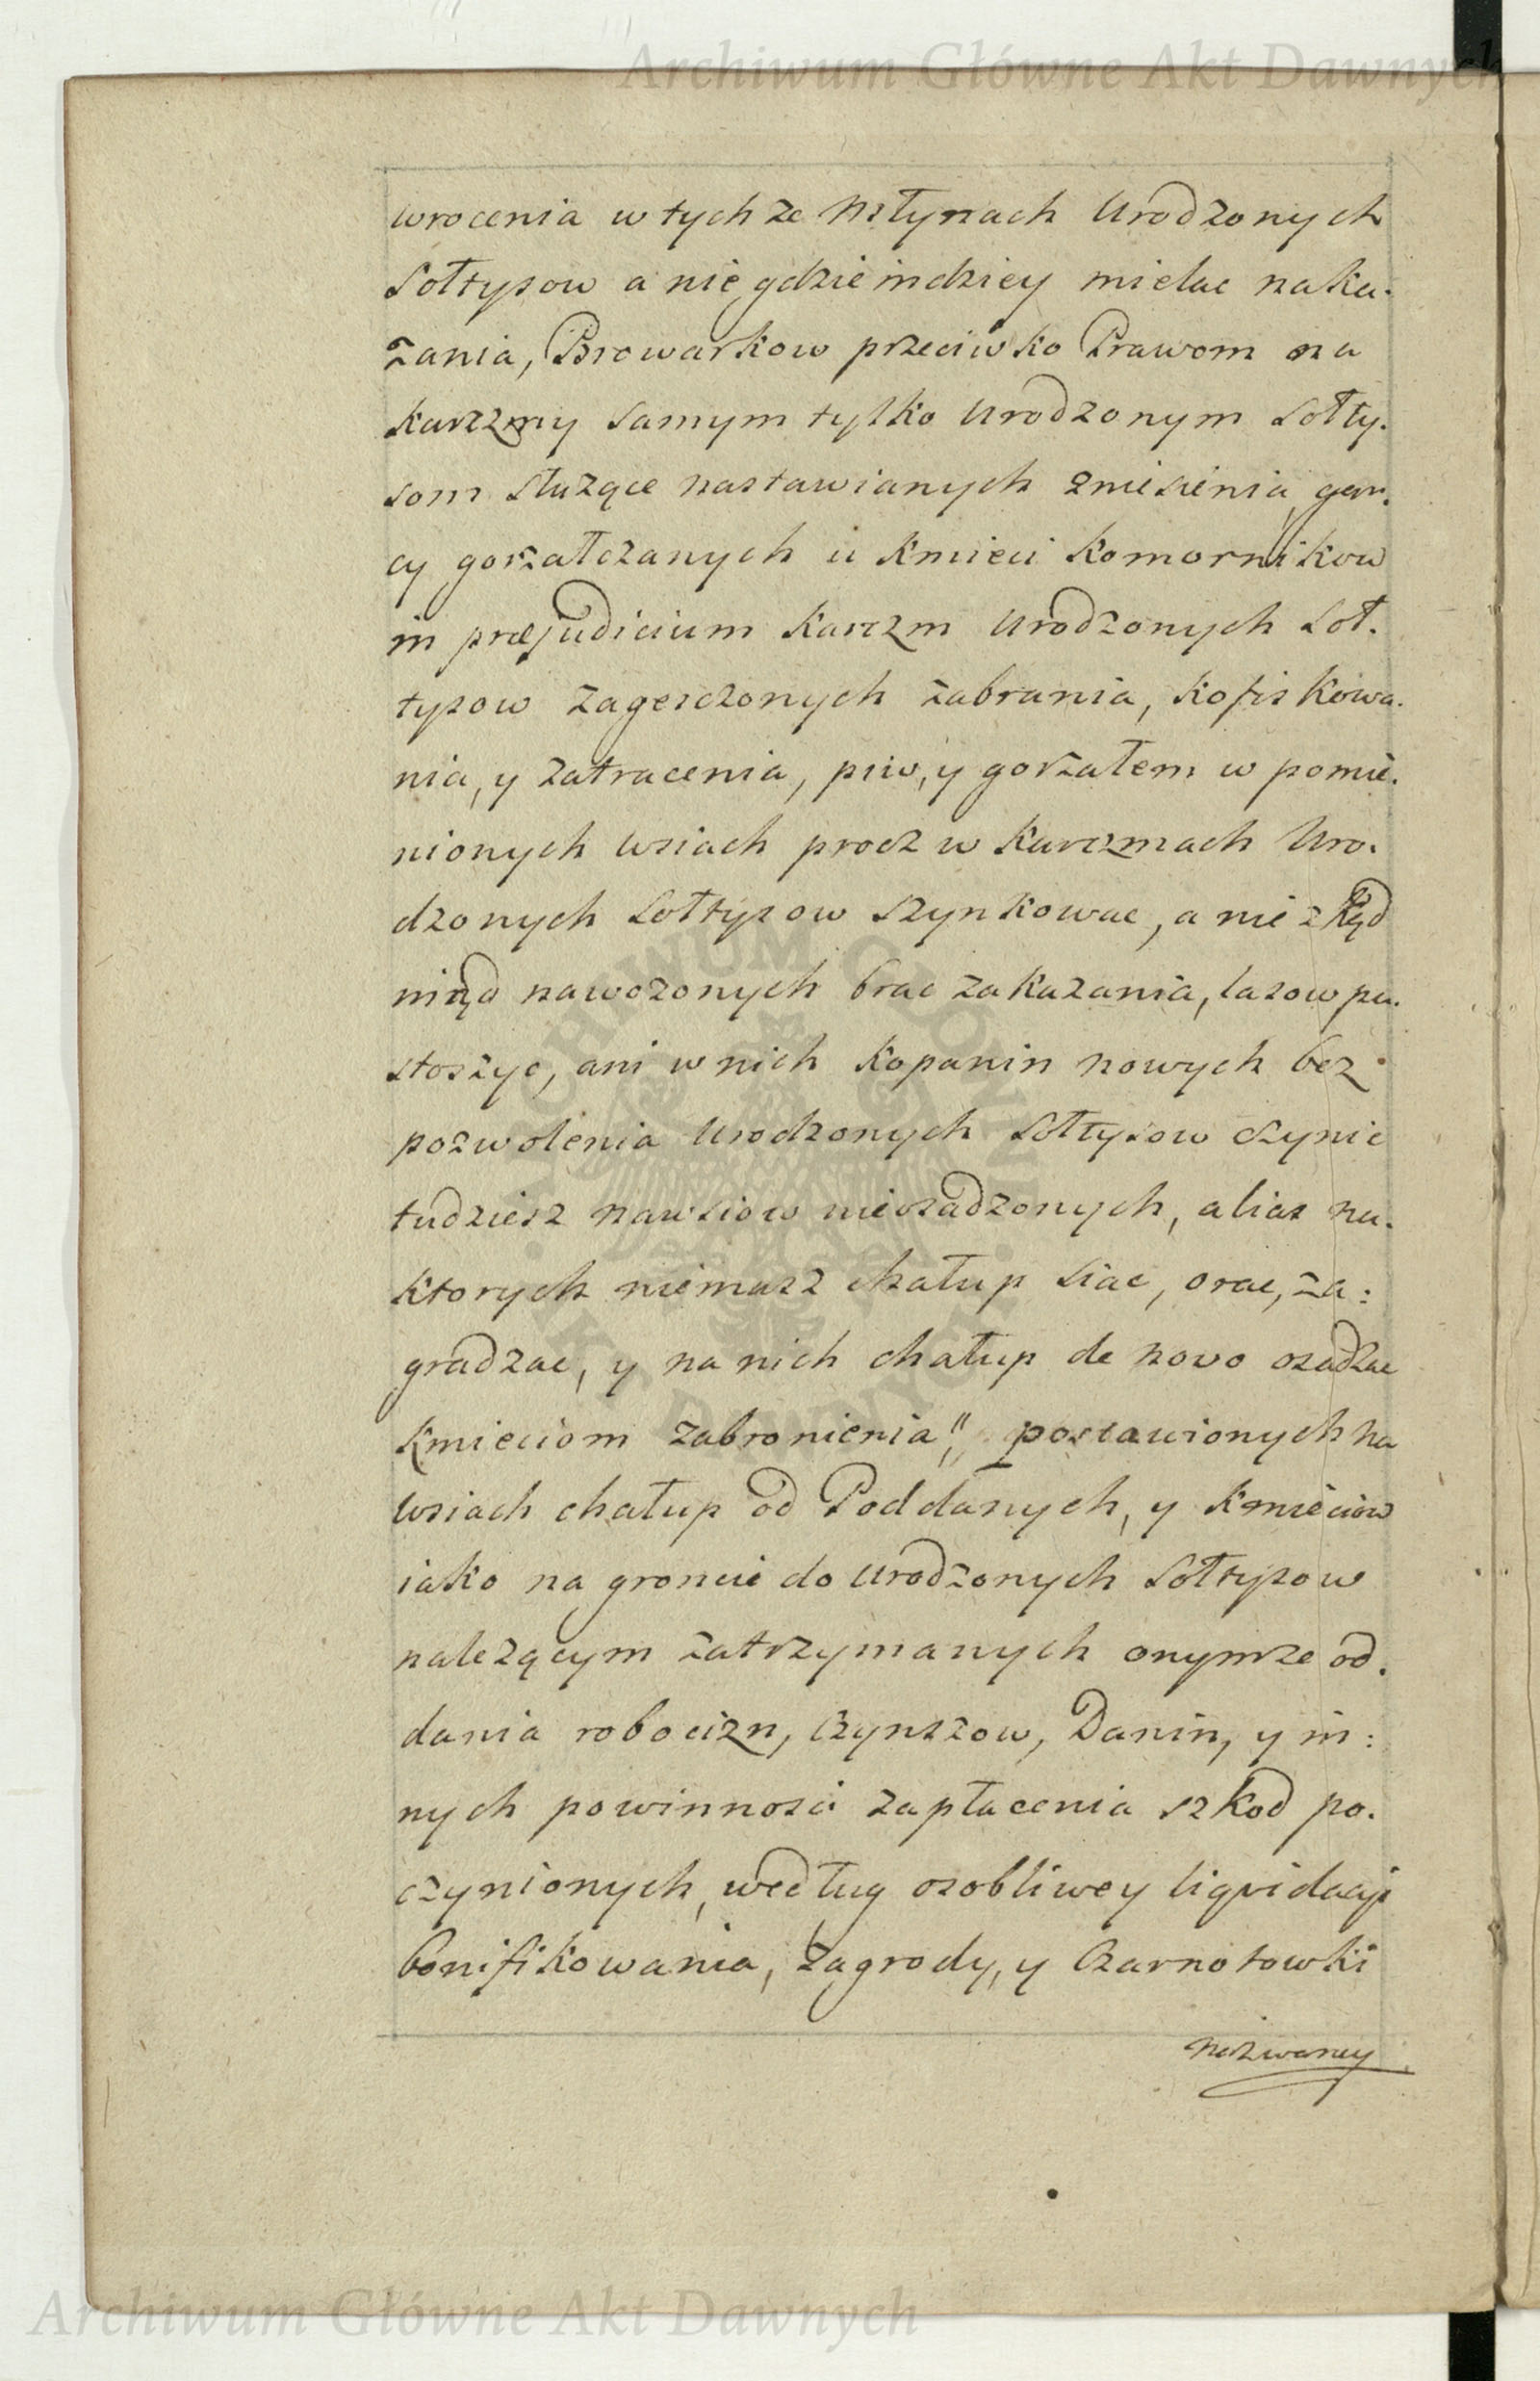 Archiwum Główne Akt Dawnych
wrocenia w tychze Młynach Urodzonych
Sołtysow a nie gdzie indziey mielac naka-
zania, Browarkow przeciwko Prawom na
karczmy samym tylko Urodzonym Sołty-
som słuzące nastawianych zniesienia, gar-
cy gorzałczanych u Kmieci Komornikow
in præjudicium Karczm Urodzonych Soł-
tysow zagesczonych zabrania, kofiskowa-
nia, y zatracenia, piw, y gorzałem w pomie-
nionych wsiach procz w Karczmach Uro-
dzonych Sołtysow szynkowac, a nie zkąd
niąd nawozonych brac zakazania, lasow pu-
stoszyc, ani w nich Kopanin nowych bez
pozwolenia Urodzonych Sołtysow czynic
tudziesz nawsiow nieosadzonych, alias na-
ktorych niemasz chałup siac, orac, za:
gradzac, y na nich chałup de novo osadzac
Kmieciom zabronienia", postawionych na
wsiach chałup od Poddanych, y Kmieciow
iako na groncie do Urodzonych Sołtysow
nalezącym zatrzymanych onymze od-
dania robocizn, Czynszow, Danin, y in:
nych powinnosci zapłacenia szkod po-
czynionych, według osobliwey liqvidacyi
bonifikowania, Zagrody, y Czarnotowki
nazwaney
Archiwum Główne Akt Dawnych